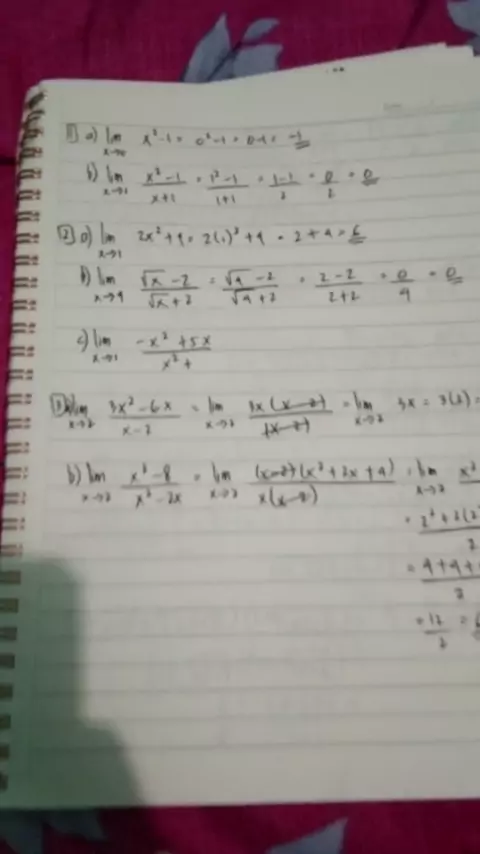 1) a) lim x→0 x²-1 = 0²-1 = 0-1 = -1
b) lim x→1 x²-1/x+1 = 1²-1/1+1 = 1-1/2 = 0/2 = 0
2) a) lim x→1 2x²+4 = 2(1)²+4 = 2+4 = 6
b) lim x→4 √x-2/√x+2 = √4-2/√4+2 = 2-2/2+2 = 0/4 = 0
c) lim x→1 -x²+5x/x²+
3) a) lim x→2 3x²-6x/x-2 = lim x→2 3x(x-2)/(x-2) = lim x→2 3x = 3(2) =
b) lim x→2 x³-8/x²-2x = lim x→2 (x-2)(x²+2x+4)/x(x-2) = lim x→2 x²
= 2²+2(2)/2
= 4+4+/2
= 12/2 = 6